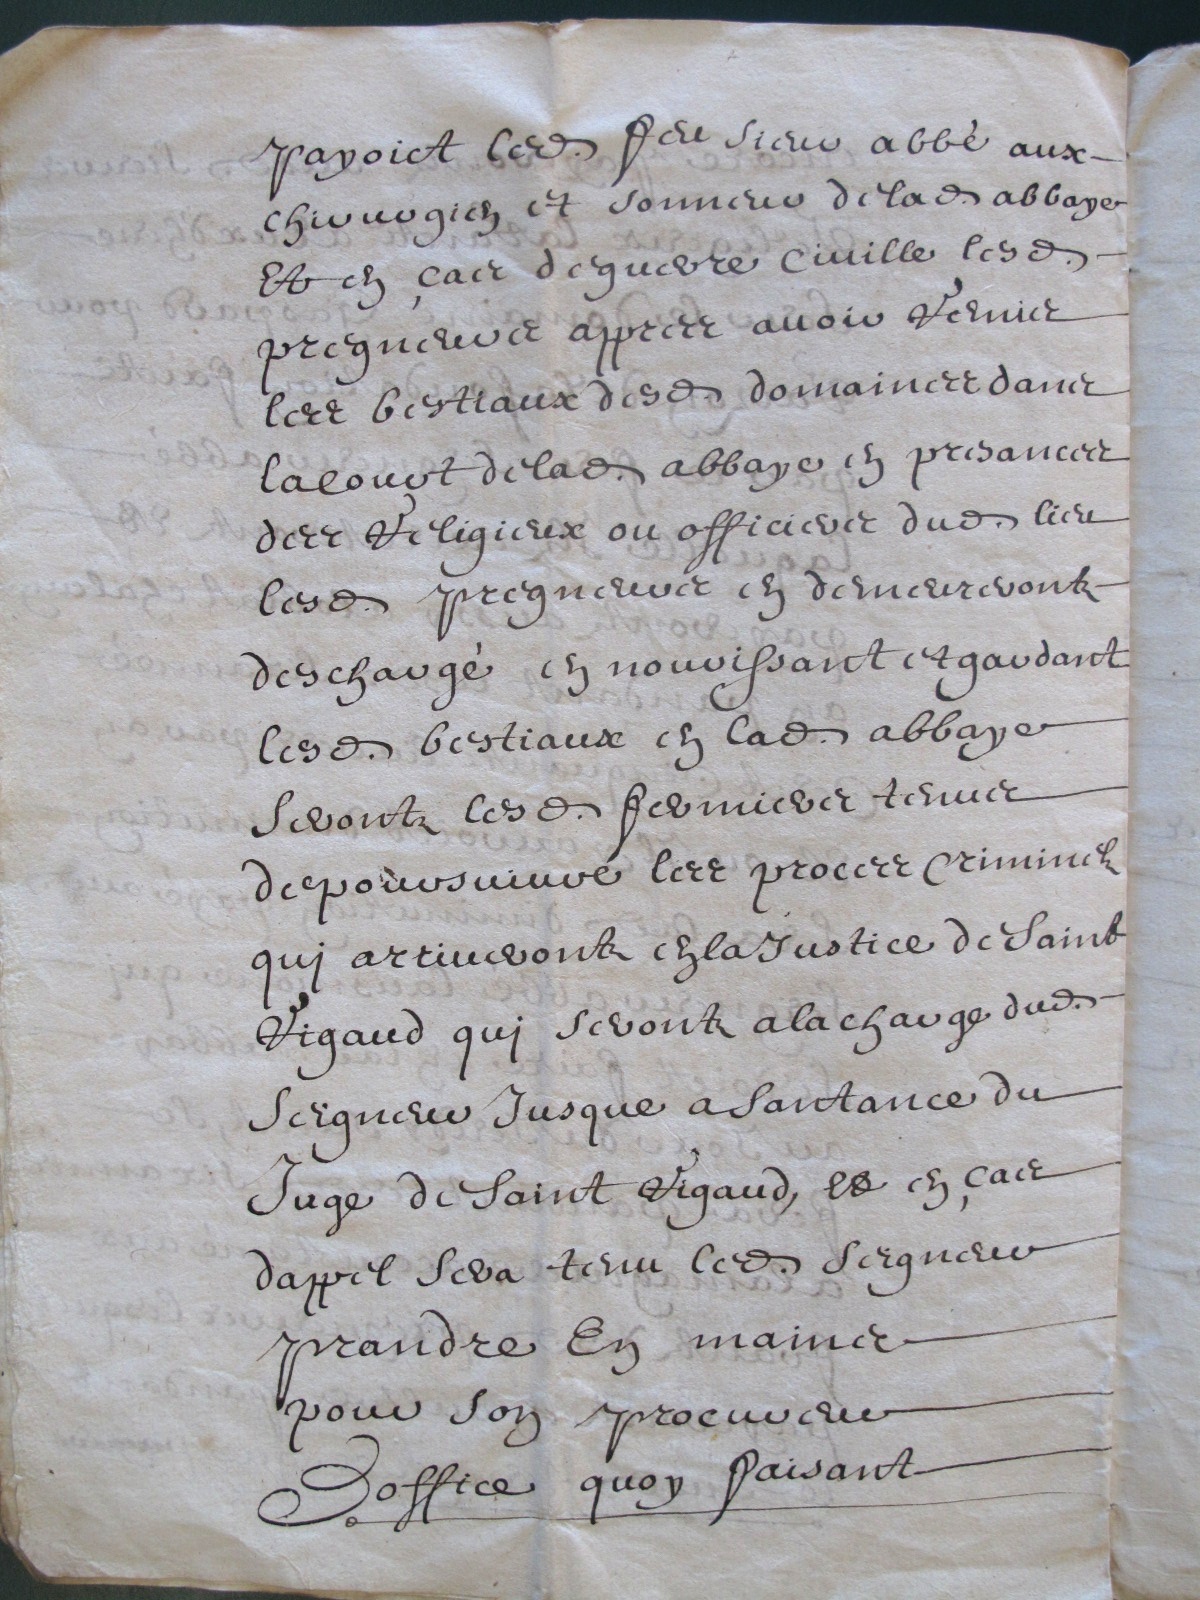 payoict led. feu sieur abbé aux
chirurgien et sonneur de lad. abbaye
Et en cas de guerre Civille lesd.
pregneurs appres avoir Remis
les bestiaux desd. domaines dans
la court de lad. abbaye en presances
des Religieux ou officiers dud. lieu
lesd. pregneurs en demeureront
deschargé en nourissant et gardant
lesd. bestiaux en lad. abbaye
Seront lesd. fermiers tenus
de poursuivré les proces Criminels
qui arriveront en la Justice de Saint
Rigaud qui seront a la charge dud.
Seigneur Jusque a Santance du
Juge de Saint Rigaud, Et en cas
dappel Sera tenu led. Seigneur
prandre En mains
pour son procureur
Doffice quoy faisant